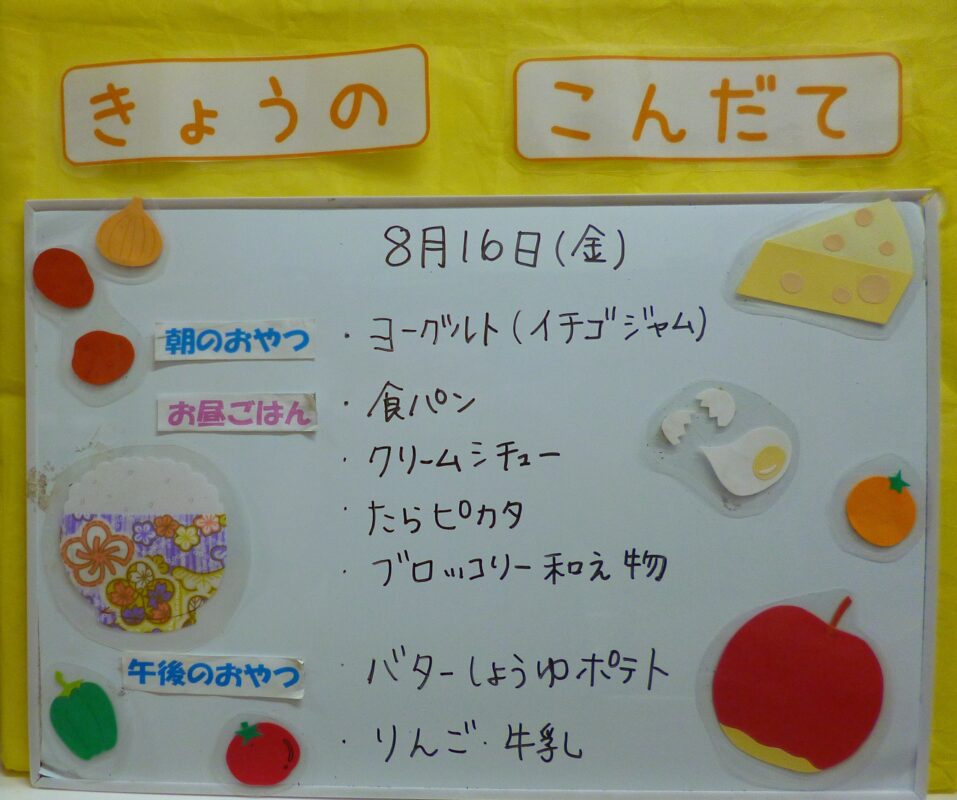 きょうの こんだて
8月16日(金)
朝のおやつ ・ヨーグルト(イチゴジャム)
お昼ごはん ・食パン
・クリームシチュー
・たらピカタ
・ブロッコリー和え物
午後のおやつ ・バターしょうゆポテト
・りんご・牛乳